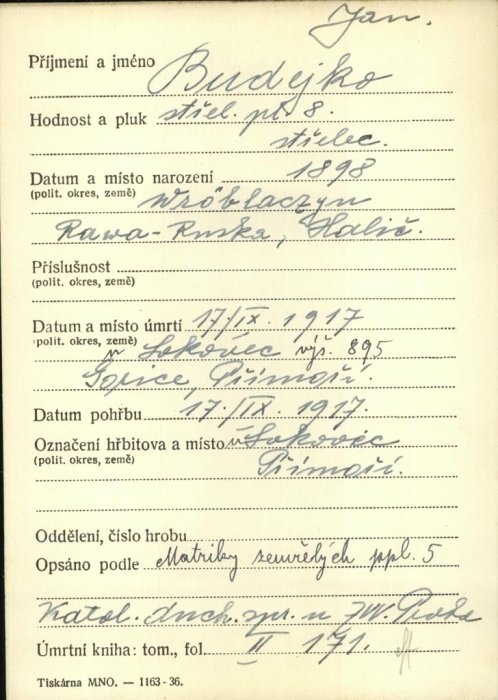 Jan.
Příjmení a jméno Budejko
Hodnost a pluk střel. pl. 8.
střelec.
Datum a místo narození 1898
(polit. okres, země) Wróblaczyn
Rawa-Ruska, Halič.
Příslušnost
(polit. okres, země)
Datum a místo úmrtí 17/IX. 1917
(polit. okres, země) v Lokovec výš. 895
Gorice, Přímoří.
Datum pohřbu 17./IX. 1917.
Označení hřbitova a místo v Lokovec
(polit. okres, země) Přímoří.
Oddělení, číslo hrobu
Opsáno podle Matriky zemřelých ppl. 5
Katol. duch. spr. u ZVV. Praha
Úmrtní kniha: tom., fol. II 171.
Tiskárna MNO. — 1163-36.